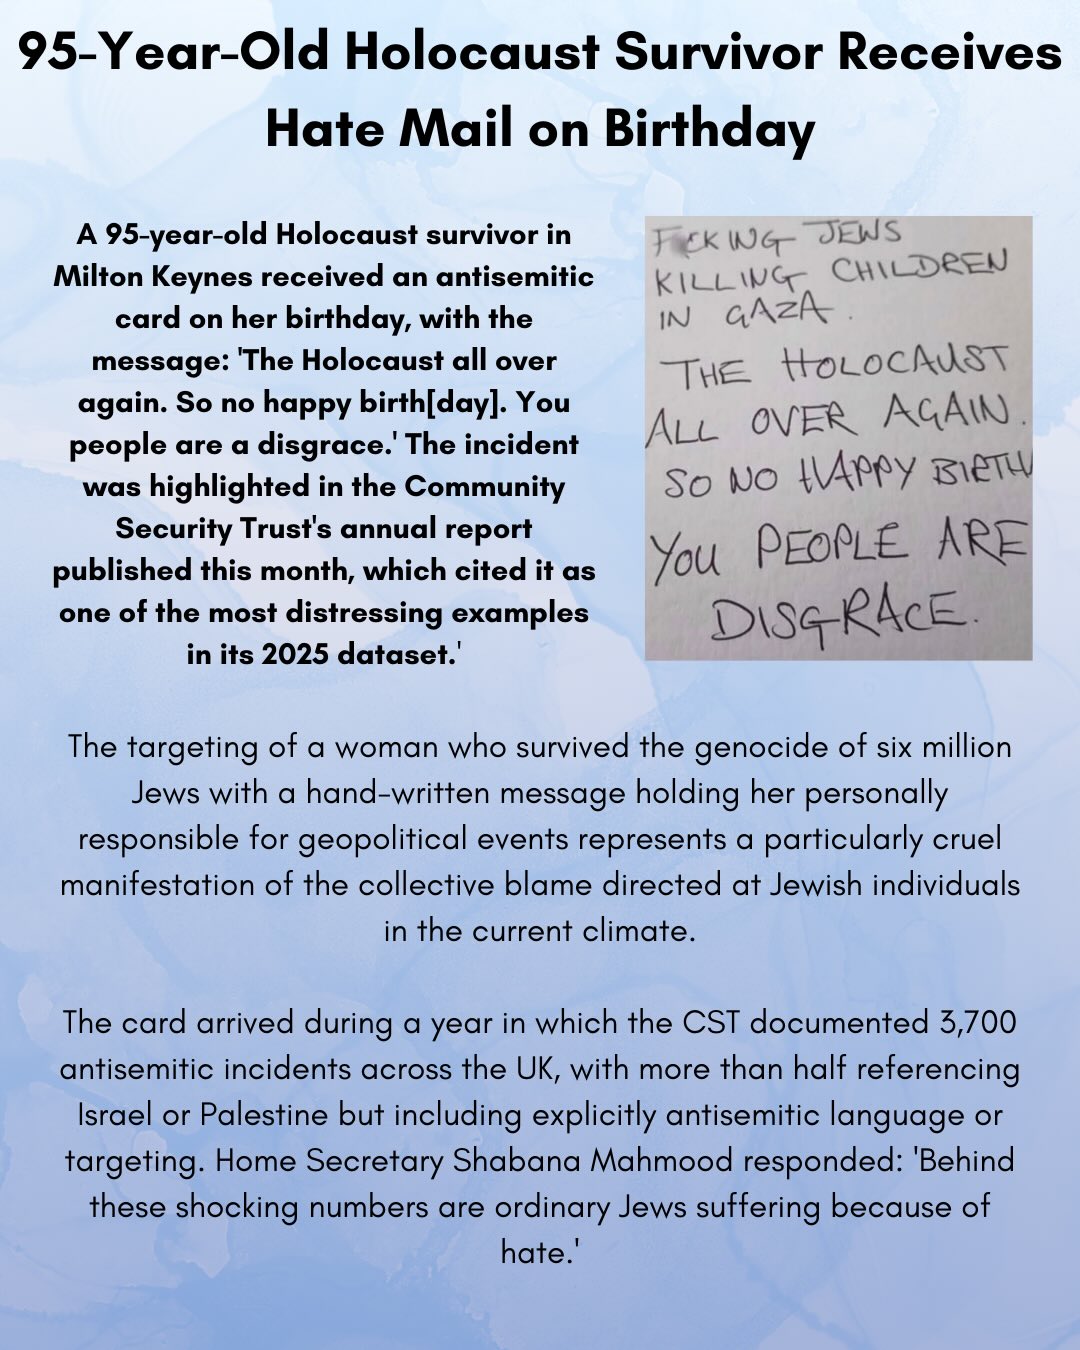 95-Year-Old Holocaust Survivor Receives
Hate Mail on Birthday
A 95-year-old Holocaust survivor in
Milton Keynes received an antisemitic
card on her birthday, with the
message: 'The Holocaust all over
again. So no happy birth[day]. You
people are a disgrace.' The incident
was highlighted in the Community
Security Trust's annual report
published this month, which cited it as
one of the most distressing examples
in its 2025 dataset.'
F CKING JEWS
KILLING CHILDREN
IN GAZA.
THE HOLOCAUST
ALL OVER AGAIN.
SO NO HAPPY BIRTH
YOU PEOPLE ARE
DISGRACE.
The targeting of a woman who survived the genocide of six million
Jews with a hand-written message holding her personally
responsible for geopolitical events represents a particularly cruel
manifestation of the collective blame directed at Jewish individuals
in the current climate.
The card arrived during a year in which the CST documented 3,700
antisemitic incidents across the UK, with more than half referencing
Israel or Palestine but including explicitly antisemitic language or
targeting. Home Secretary Shabana Mahmood responded: 'Behind
these shocking numbers are ordinary Jews suffering because of
hate.'